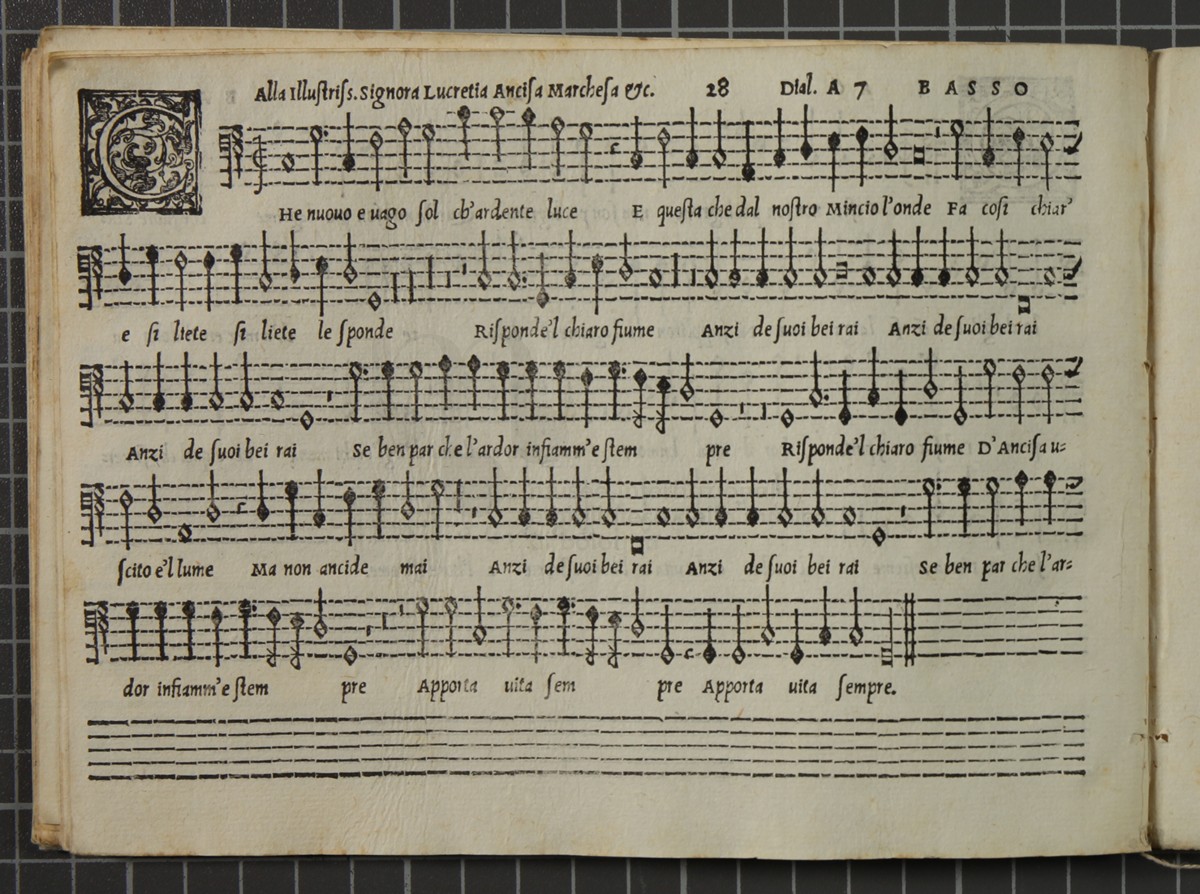 Alla Illuſtriſs. Signora Lucretia Anciſa Marcheſa &c. 28 Dial. A 7 BASSO
C He nuouo e uago ſol ch'ardente luce E queſta che dal noſtro Mincio l'onde Fa coſi chiar'
e ſi liete ſi liete le ſponde Riſponde'l chiaro fiume Anzi de ſuoi bei rai Anzi de ſuoi bei rai
Anzi de ſuoi bei rai Se ben par che l'ardor infiamm'e ſtem pre Riſponde'l chiaro fiume D'Anciſa u=
ſcito e'l lume Ma non ancide mai Anzi de ſuoi bei rai Anzi de ſuoi bei rai Se ben par che l'ar=
dor infiamm'e ſtem pre Apporta uita ſem pre Apporta uita ſempre.